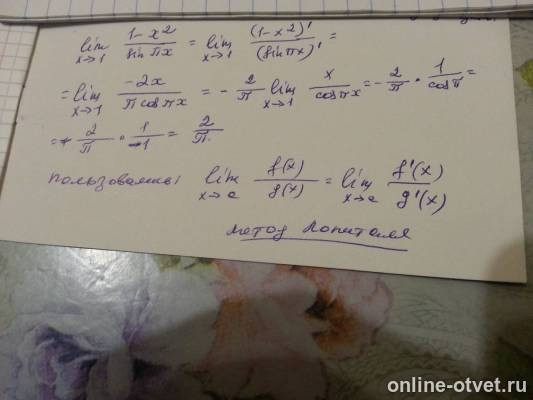 lim x→1 (1-x²)/(sin πx) = lim x→1 (1-x²)'/(sin πx)' =
= lim x→1 (-2x)/(π cos πx) = - 2/π lim x→1 x/(cos πx) = - 2/π · 1/(cos π) =
= - 2/π · 1/(-1) = 2/π.
пользовались lim x→c f(x)/g(x) = lim x→c f'(x)/g'(x)
метод Лопиталя
online-otvet.ru